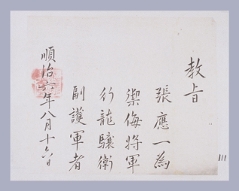 敎旨
張應一為
禦侮將軍
行龍驤衛
副護軍者
順治六年八月十六日